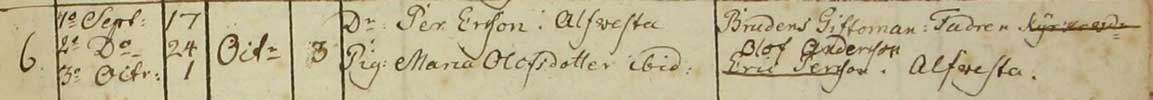 1a Sept: 17 Dr: Per Ersson i Alfvesta Brudens Giftoman: Fadren
6. 2a Do 24 Octr 3 Olof Andersson
3e Octr: 1 Pig: Maria Olofsdotter ibid: Eric Persson. Alfvesta.